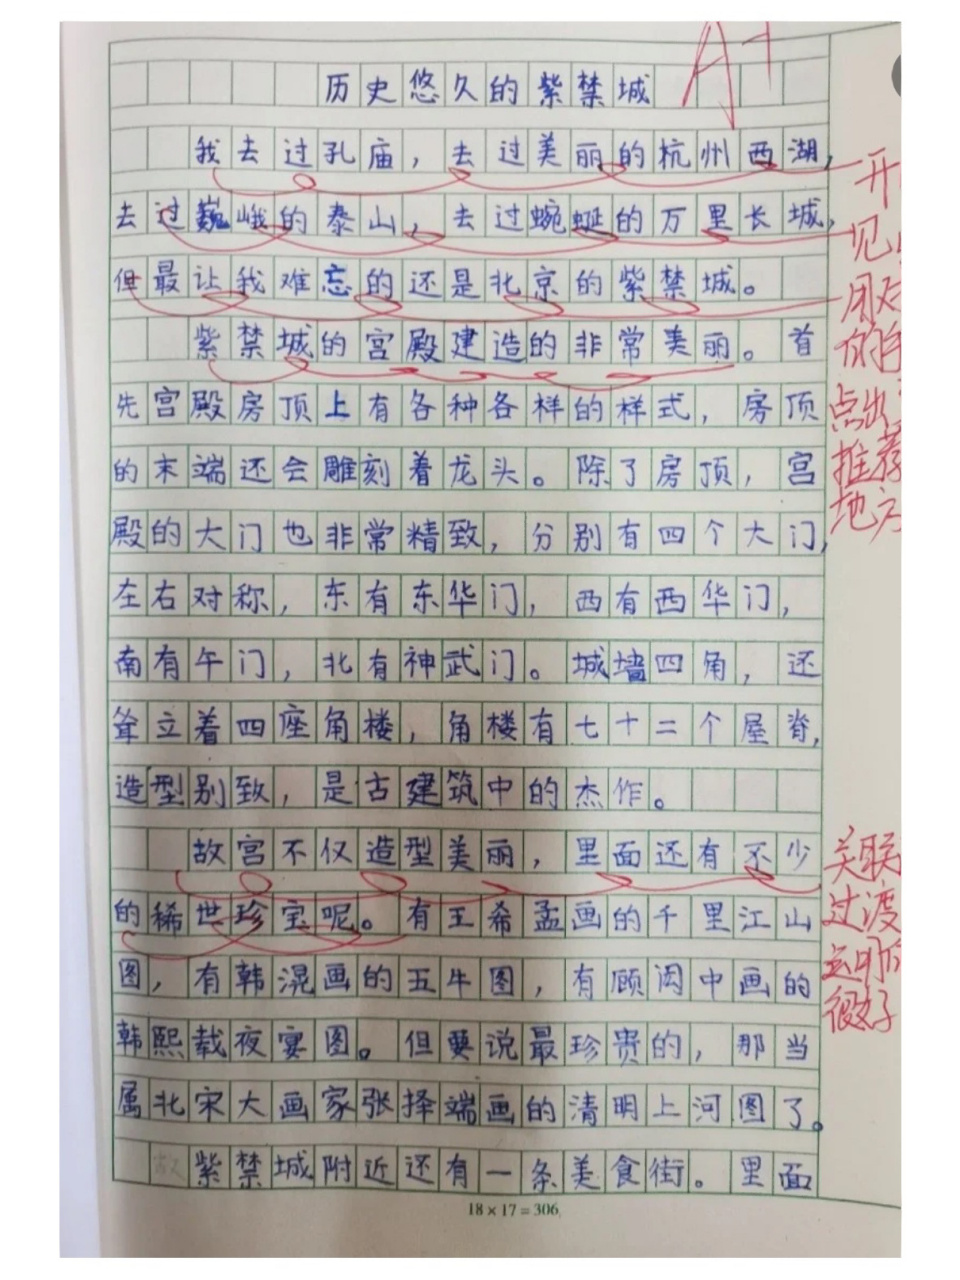 A+
历史悠久的紫禁城
我去过孔庙，去过美丽的杭州西湖，
去过巍峨的泰山，去过蜿蜒的万里长城，
但最让我难忘的还是北京的紫禁城。
紫禁城的宫殿建造的非常美丽。首
先宫殿房顶上有各种各样的样式，房顶
的末端还会雕刻着龙头。除了房顶，宫
殿的大门也非常精致，分别有四个大门，
左右对称，东有东华门，西有西华门，
南有午门，北有神武门。城墙四角，还
耸立着四座角楼，角楼有七十二个屋脊，
造型别致，是古建筑中的杰作。
故宫不仅造型美丽，里面还有不少
的稀世珍宝呢。有王希孟画的千里江山
图，有韩滉画的五牛图，有顾闳中画的
韩熙载夜宴图。但要说最珍贵的，那当
属北宋大画家张择端画的清明上河图了。
紫禁城附近还有一条美食街。里面
18×17=306
开
见
用
你的
点出
推荐
地方
关联
过渡
运用
很好